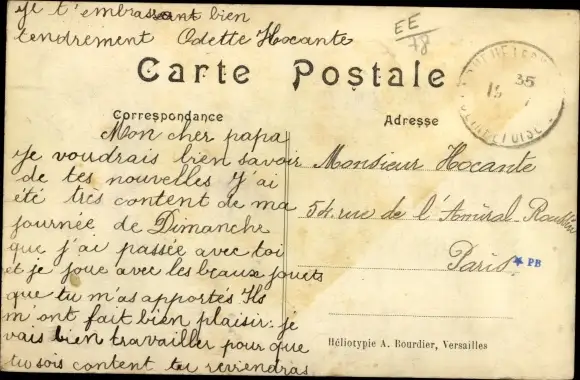 je t'embrassant bien
tendrement Odette Hocante
EE
78
Carte Postale
35
SEINE ET OISE
Correspondance
Adresse
Mon cher papa
je voudrais bien savoir
de tes nouvelles j'ai
été très content de ma
journée de Dimanche
que j'ai passée avec toi
et je joue avec les beaux jouets
que tu m'as apportés Ils
m'ont fait bien plaisir: je
vais bien travailler pour que
tu sois content tu reviendras
Monsieur Hocante
54 rue de l'Amiral Roussin
Paris
PB
Héliotypie A. Bourdier, Versailles